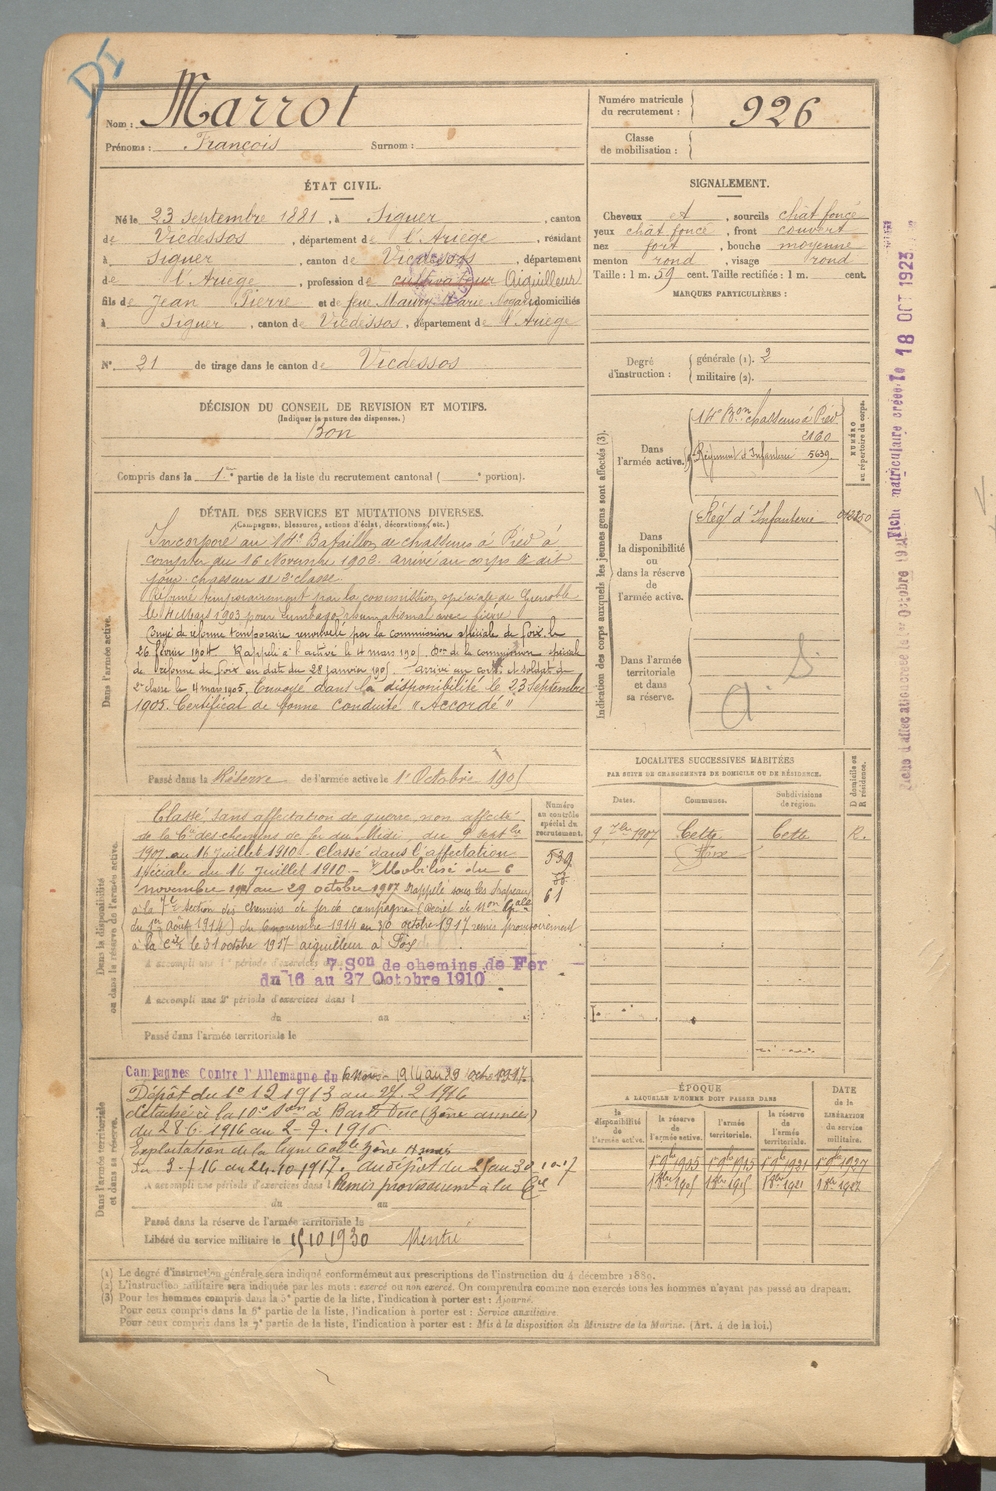 DI
Nom : Marrot
Prénoms : François Surnom :
Numéro matricule du recrutement : 926
Classe de mobilisation :
ÉTAT CIVIL.
Né le 23 Septembre 1881, à Siguer, canton
de Vicdessos, département de l'Ariège, résidant
à Siguer, canton de Vicdessos, département
de l'Ariège, profession de cultivateur Aiguilleur
fils de Jean Pierre et de feue Maury Marie domiciliés
à Siguer, canton de Vicdessos, département de l'Ariège
N° 21 de tirage dans le canton de Vicdessos
SIGNALEMENT.
Cheveux et, sourcils chât foncé
yeux chât foncé, front couvert
nez fort, bouche moyenne
menton rond, visage rond
Taille : 1 m. 59 cent. Taille rectifiée : 1 m. cent.
MARQUES PARTICULIÈRES :
Degré d'instruction : générale (1). 2
militaire (2).
DÉCISION DU CONSEIL DE REVISION ET MOTIFS.
(Indiquer la nature des dispenses.)
Bon
Compris dans la 1re partie de la liste du recrutement cantonal ( e portion).
DÉTAIL DES SERVICES ET MUTATIONS DIVERSES.
(Campagnes, blessures, actions d'éclat, décorations, etc.)
Dans l'armée active.
Incorporé au 14e Bataillon de chasseurs à Pied à
compter du 16 Novembre 1902. arrivé au corps le dit
jour chasseur de 2e classe.
Réformé temporairement par la commission spéciale de Grenoble
le 4 Mars 1903 pour
Congé de réforme temporaire renouvelé par la commission spéciale de foix le
26 février 1904. Rappelé à l'activité le 4 mars 1905 de la commission spéciale
de réforme de foix en date du 28 janvier 1905. arrivé au corps et soldat de
2e classe le 4 mars 1905, Envoyé dans la disponibilité le 23 Septembre
1905. Certificat de bonne conduite "Accordé"
Passé dans la Réserve de l'armée active le 1er Octobre 1905
Indication des corps auxquels les jeunes gens sont affectés (3).
NUMÉRO au répertoire du corps.
Dans l'armée active.
14e Bon chasseurs à Pied
2160
Régiment d'Infanterie 5639.
Dans la disponibilité ou dans la réserve de l'armée active.
Régt d'Infanterie 012250
Dans l'armée territoriale et dans sa réserve.
Dans la disponibilité ou dans la réserve de l'armée active.
Numéro au contrôle spécial du recrutement.
Classé sans affectation de guerre, non affecté
de la Cie des chemins de fer du Midi, du 9 7bre
1907 au 16 juillet 1910 - Classé dans l'affectation
spéciale du 16 juillet 1910 - Mobilisé du 6
novembre 1914 au 29 octobre 1917 Rappelé sous les drapeaux
à la 7e Section des chemins de fer de campagne (Décret de Mon Gale
du 1er Août 1914) du 6 novembre 1914 au 30 octobre 1917 remis provisoirement
à la Cie le 31 octobre 1917 aiguilleur à Foix
539
61
A accompli une 1re période d'exercices dans l
7. Son de chemins de Fer
du 16 au 27 Octobre 1910
A accompli une 2e période d'exercices dans l
du au
Passé dans l'armée territoriale le
LOCALITÉS SUCCESSIVES HABITÉES
PAR SUITE DE CHANGEMENTS DE DOMICILE OU DE RÉSIDENCE.
Dates. Communes. Subdivisions de région. D domicile ou R résidence.
9 7bre 1907 Cette Cette R.
Dans l'armée territoriale et dans sa réserve.
Campagnes Contre l'Allemagne du 6 Nov. 1914 au 29 octobre 1917
détaché à la 10e Son à Bar le Duc (Zone armées)
du 28-6-1916 au 2-7-1916
Exploitation de la ligne
au 24-10-1917.
A accompli une période d'exercices dans l
Remis provisoirement à la Cie
du au
Passé dans la réserve de l'armée territoriale le
Libéré du service militaire le 15 10 1930
ÉPOQUE
A LAQUELLE L'HOMME DOIT PASSER DANS
la disponibilité de l'armée active. la réserve de l'armée active. l'armée territoriale. la réserve de l'armée territoriale. DATE de la LIBÉRATION du service militaire.
Fiche matriculaire créée le 18 OCT 1923
(1) Le degré d'instruction générale sera indiqué conformément aux prescriptions de l'instruction du 4 décembre 1889.
(2) L'instruction militaire sera indiquée par les mots : exercé ou non exercé. On comprendra comme non exercés tous les hommes n'ayant pas passé au drapeau.
(3) Pour les hommes compris dans la 5e partie de la liste, l'indication à porter est : Ajourné.
Pour ceux compris dans la 6e partie de la liste, l'indication à porter est : Service auxiliaire.
Pour ceux compris dans la 7e partie de la liste, l'indication à porter est : Mis à la disposition du Ministre de la Marine. (Art. 4 de la loi.)